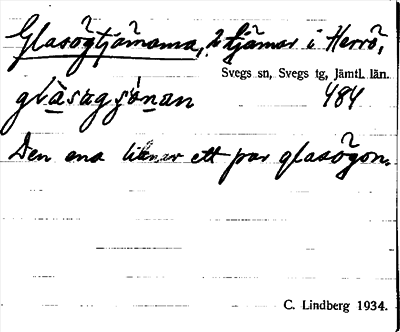 Glasögtjärnarna, 2 tjärnar i Herrö,
Svegs sn, Svegs tg, Jämtl. län.
glàsagȷ́ö̀nan 484
Den ena liknar ett par glasögon.
C. Lindberg 1934.